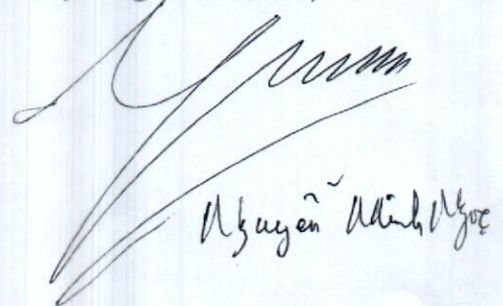 Nguyễn Minh Ngọc